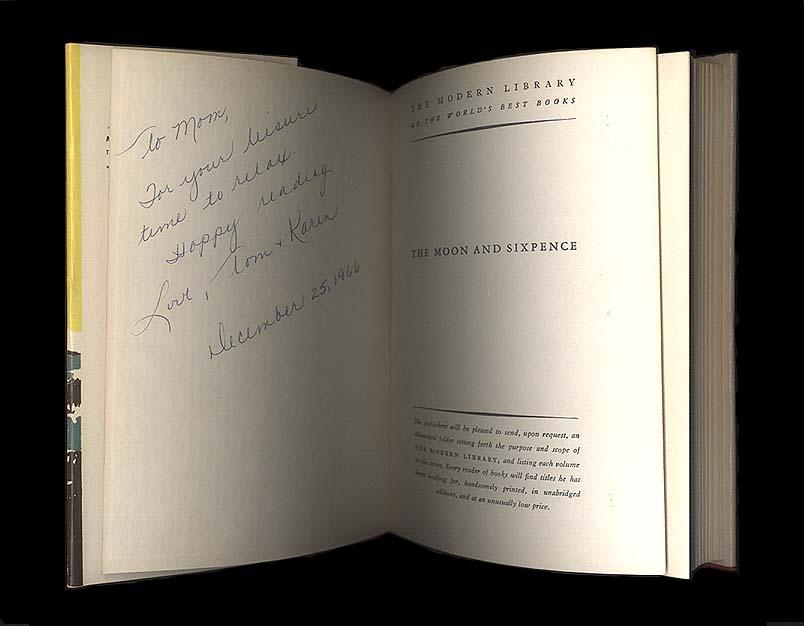 To Mom,
For your leisure
time to relax.
Happy reading
Love, Tom + Karen
December 25, 1966
THE MODERN LIBRARY
OF THE WORLD'S BEST BOOKS
THE MOON AND SIXPENCE
The publishers will be pleased to send, upon request, an
illustrated folder setting forth the purpose and scope of
THE MODERN LIBRARY, and listing each volume
in the series. Every reader of books will find titles he has
been looking for, handsomely printed, in unabridged
editions, and at an unusually low price.